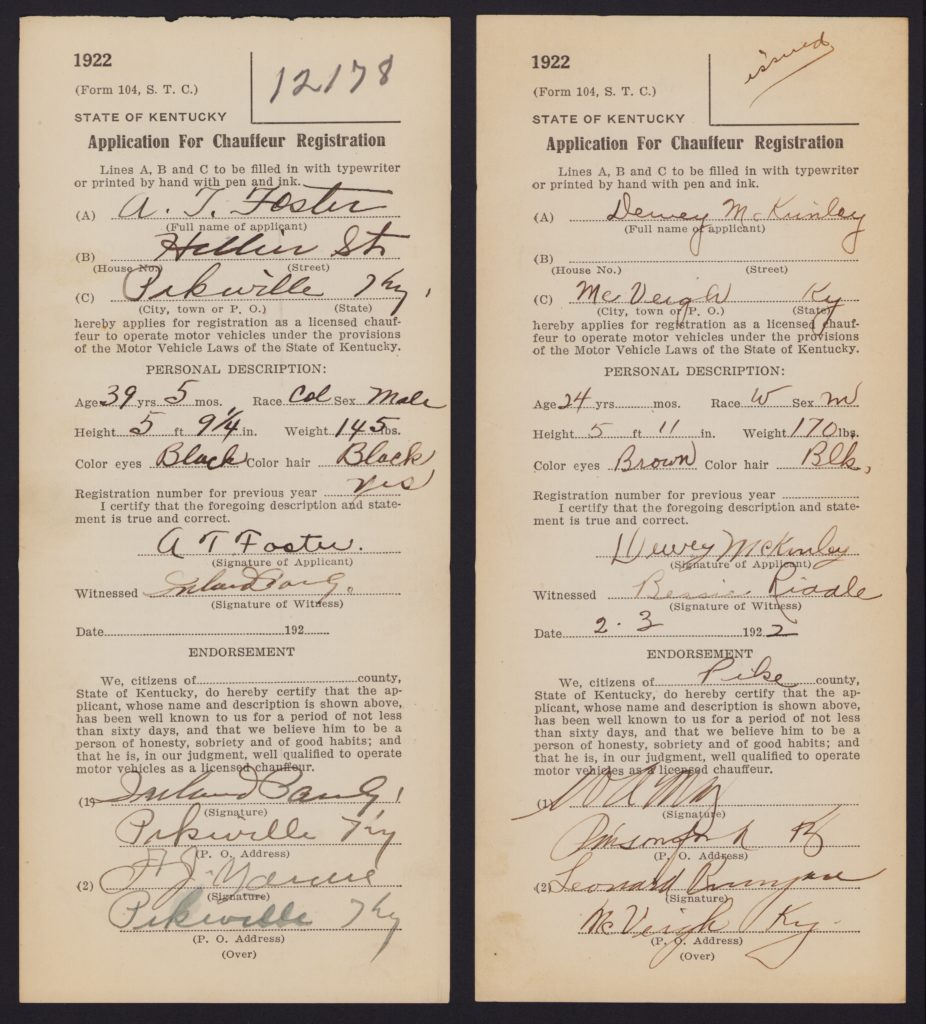 1922
12178
(Form 104, S. T. C.)
STATE OF KENTUCKY
Application For Chauffeur Registration
Lines A, B and C to be filled in with typewriter
or printed by hand with pen and ink.
(A) A. T. Foster
(Full name of applicant)
(B) Hellier St
(House No.) (Street)
(C) Pikeville Ky.
(City, town or P. O.) (State)
hereby applies for registration as a licensed chauf-
feur to operate motor vehicles under the provisions
of the Motor Vehicle Laws of the State of Kentucky.
PERSONAL DESCRIPTION:
Age 39 yrs 5 mos. Race Col Sex Male
Height 5 ft 9 1/4 in. Weight 145 lbs.
Color eyes Black Color hair Black
Registration number for previous year yes
I certify that the foregoing description and state-
ment is true and correct.
A T Foster.
(Signature of Applicant)
Witnessed
(Signature of Witness)
Date 192
ENDORSEMENT
We, citizens of county,
State of Kentucky, do hereby certify that the ap-
plicant, whose name and description is shown above,
has been well known to us for a period of not less
than sixty days, and that we believe him to be a
person of honesty, sobriety and of good habits; and
that he is, in our judgment, well qualified to operate
motor vehicles as a licensed chauffeur.
(1)
(Signature)
Pikeville Ky
(P. O. Address)
(2)
(Signature)
Pikeville Ky
(P. O. Address)
(Over)
1922
issued
(Form 104, S. T. C.)
STATE OF KENTUCKY
Application For Chauffeur Registration
Lines A, B and C to be filled in with typewriter
or printed by hand with pen and ink.
(A) Dewey McKinley
(Full name of applicant)
(B)
(House No.) (Street)
(C) McVeigh Ky
(City, town or P. O.) (State)
hereby applies for registration as a licensed chauf-
feur to operate motor vehicles under the provisions
of the Motor Vehicle Laws of the State of Kentucky.
PERSONAL DESCRIPTION:
Age 24 yrs. mos. Race W Sex M
Height 5 ft 11 in. Weight 170 lbs.
Color eyes Brown Color hair Blk.
Registration number for previous year
I certify that the foregoing description and state-
ment is true and correct.
Dewey McKinley
(Signature of Applicant)
Witnessed Bessie Riddle
(Signature of Witness)
Date 2. 3 192 2
ENDORSEMENT
We, citizens of Pike county,
State of Kentucky, do hereby certify that the ap-
plicant, whose name and description is shown above,
has been well known to us for a period of not less
than sixty days, and that we believe him to be a
person of honesty, sobriety and of good habits; and
that he is, in our judgment, well qualified to operate
motor vehicles as a licensed chauffeur.
(1)
(Signature)
Ky
(P. O. Address)
(2) Leonard Runyon
(Signature)
McVeigh Ky
(P. O. Address)
(Over)